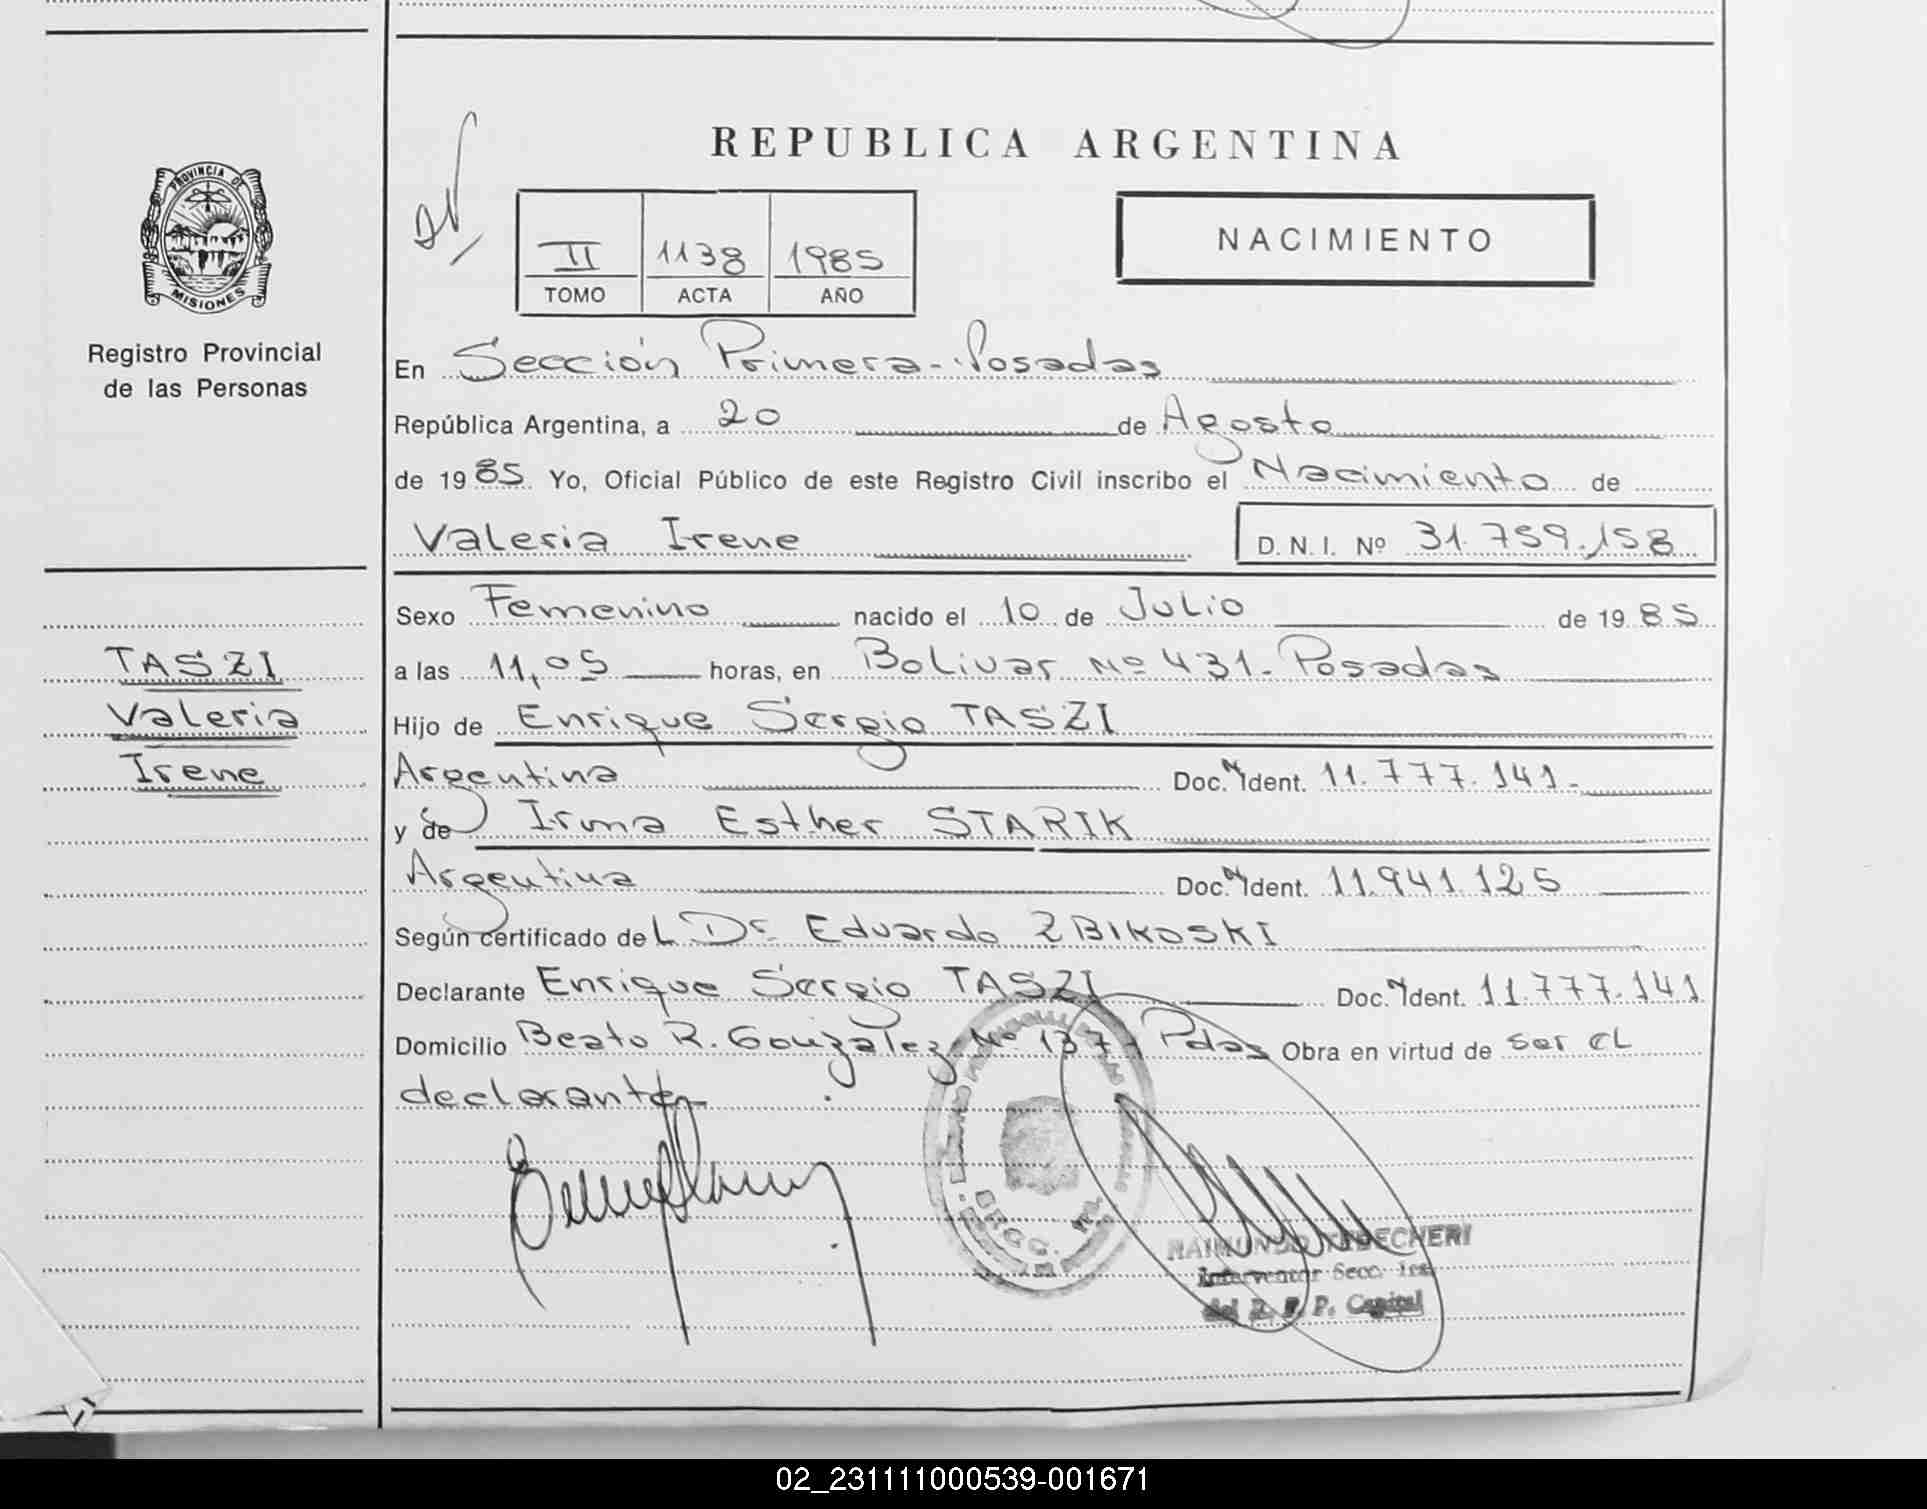 REPUBLICA ARGENTINA
PROVINCIA DE
MISIONES
Registro Provincial
de las Personas
II 1138 1985
TOMO ACTA AÑO
NACIMIENTO
En Sección Primera-Posadas
República Argentina, a 20 de Agosto
de 1985 Yo, Oficial Público de este Registro Civil inscribo el Nacimiento de
Valeria Irene D. N. I. Nº 31.759.158
Sexo Femenino nacido el 10 de Julio de 1985
a las 11,05 horas, en Bolivar Nº 431-Posadas
Hijo de Enrique Sergio TASZI
Argentina Doc. Ident. 11.777.141-
y de Irma Esther STARIK
Argentina Doc. Ident. 11.941.125
Según certificado del Dr. Eduardo ZBIKOSKI
Declarante Enrique Sergio TASZI Doc. Ident. 11.777.141
Domicilio Beato R. Gonzalez Nº 137- Pdas Obra en virtud de ser el
declarante-
TASZI
Valeria
Irene
SECC. 1ra.
RAIMUNDO
Interventor Secc. 1ra.
del R. P. P. Capital
02_231111000539-001671